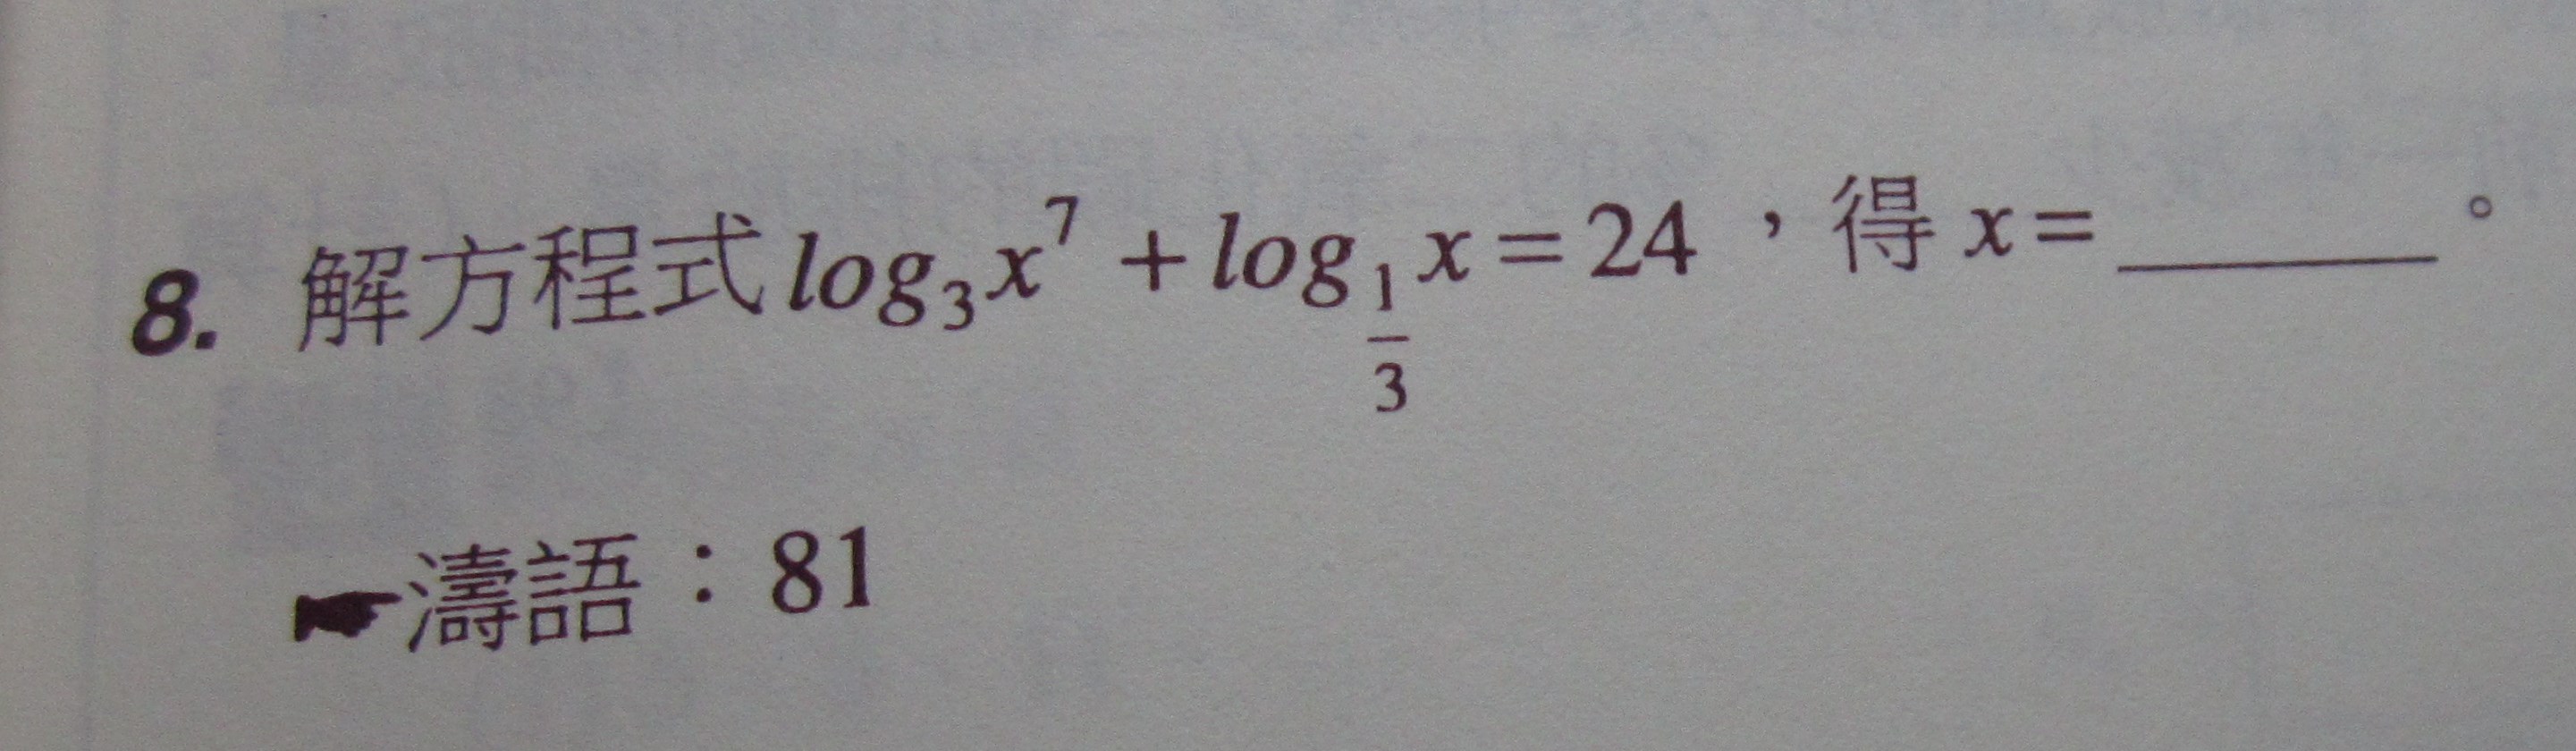 8. 解方程式 log₃x⁷ + log_{1/3} x = 24，得 x = ______。
☛濤語：81